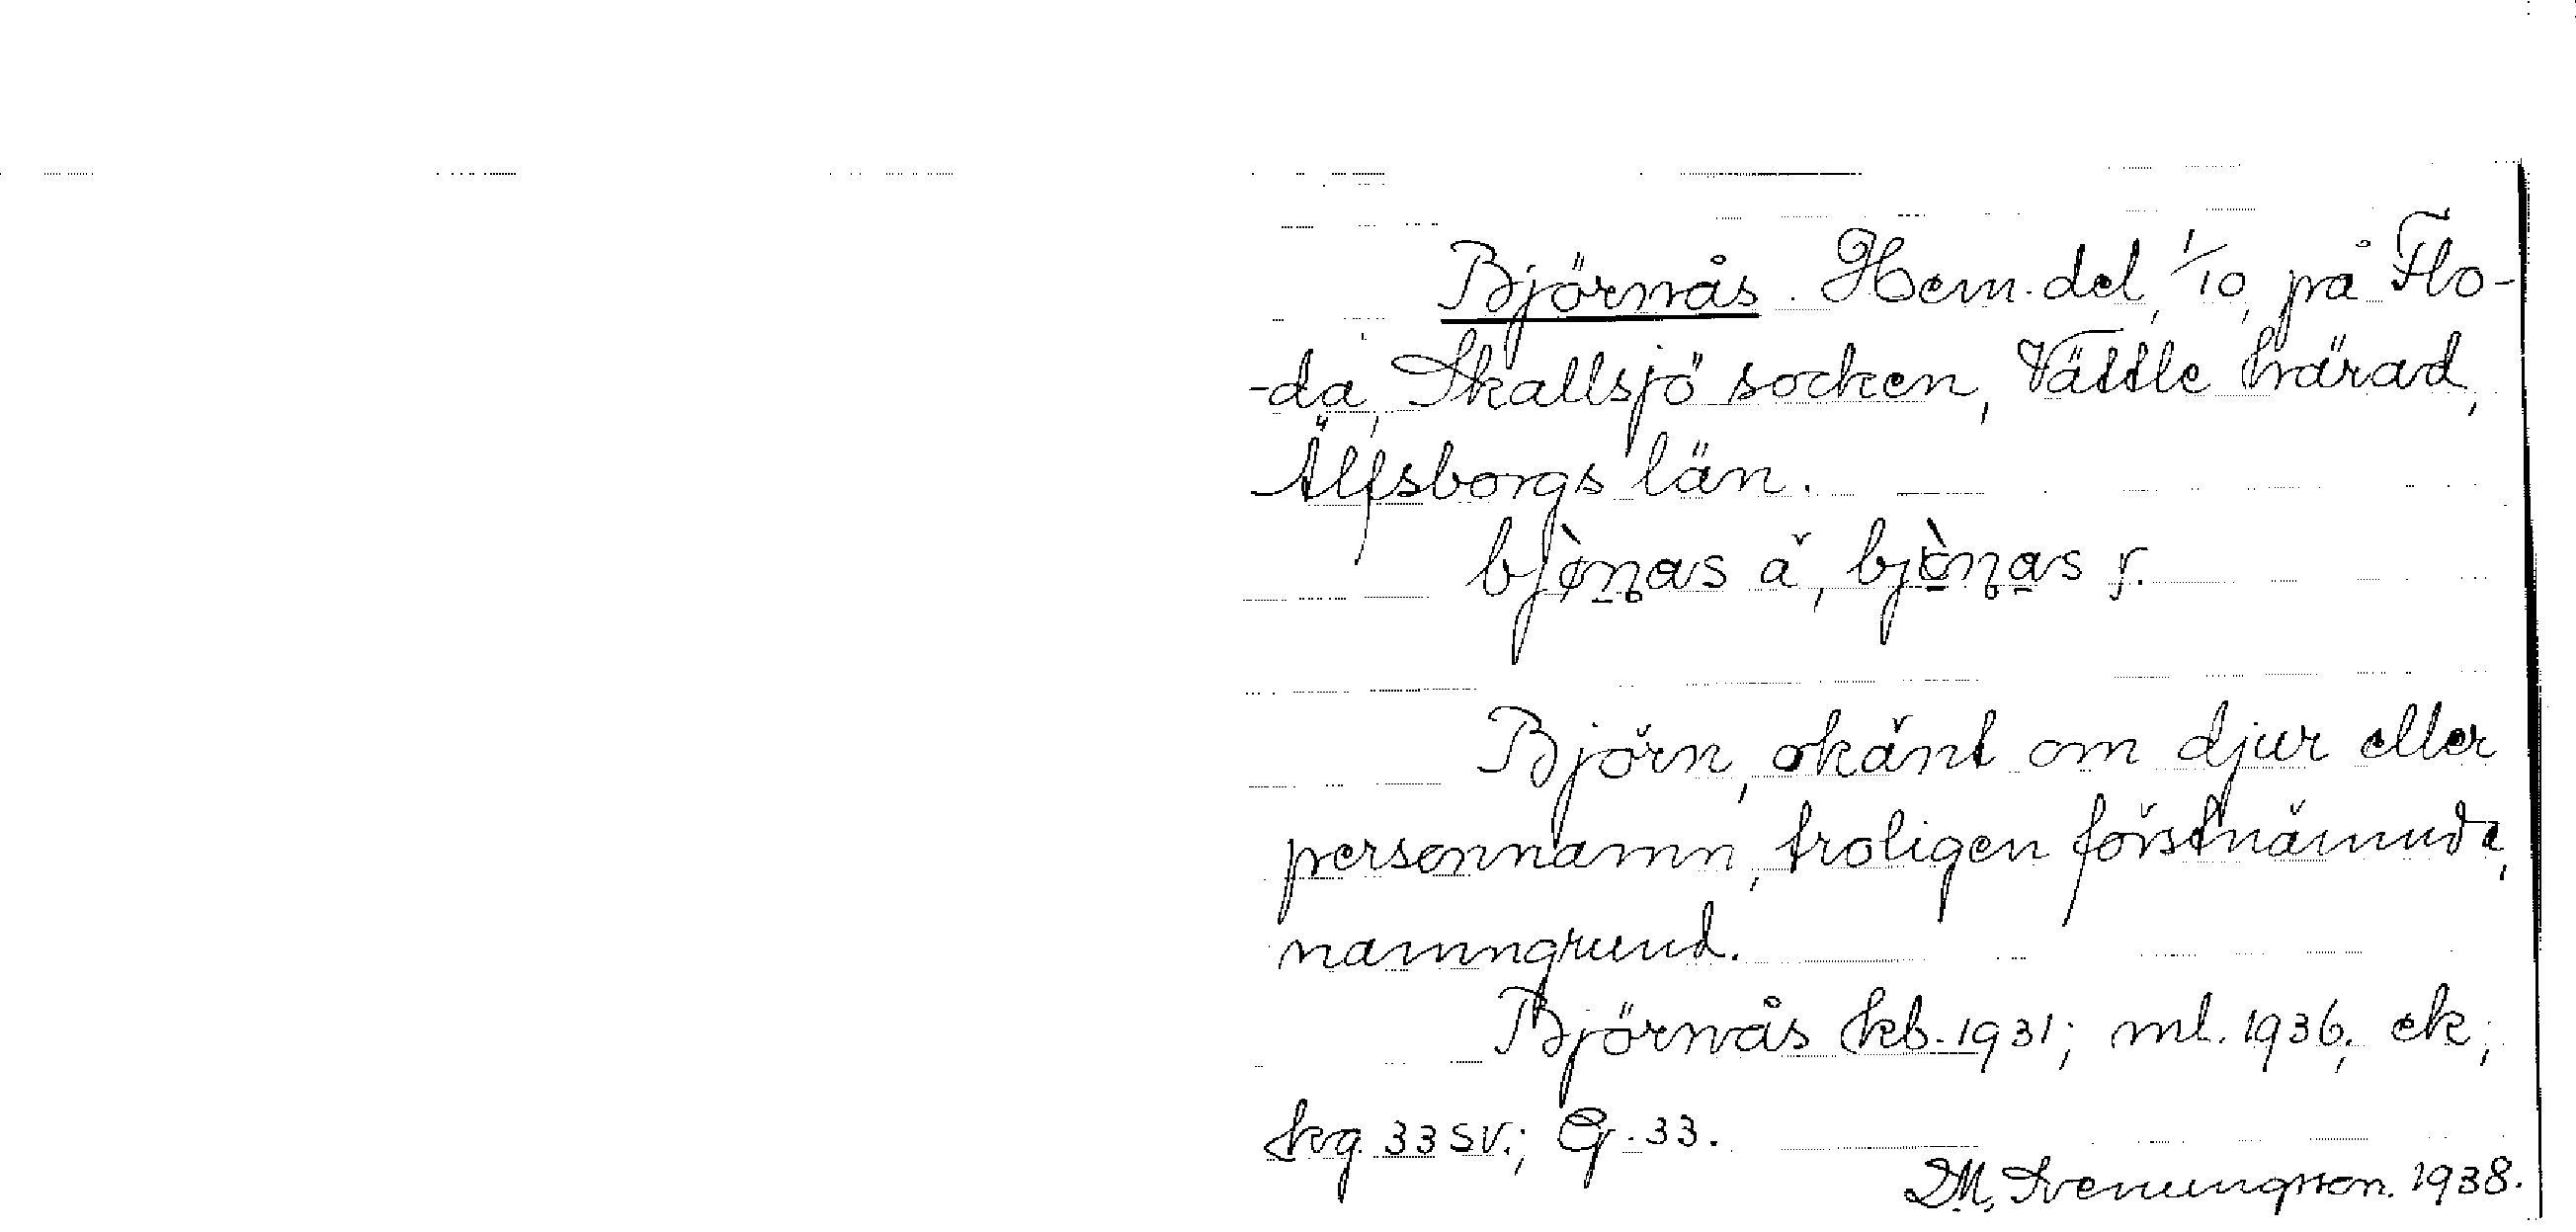 Björnås. Hem. del, 1/10, på Flo-
-da, Skallsjö socken, Vättle härad,
Älfsborgs län.
bjø̀ṇas ǎ, bjɵ̀ṇas r.
Björn, okänt om djur eller
personnamn, troligen förstnämnda,
namngrund.
Björnås kb. 1931; ml. 1936, ek;
hvg. 33 SV.; G. 33.
D.M. Svenungsson. 1938.